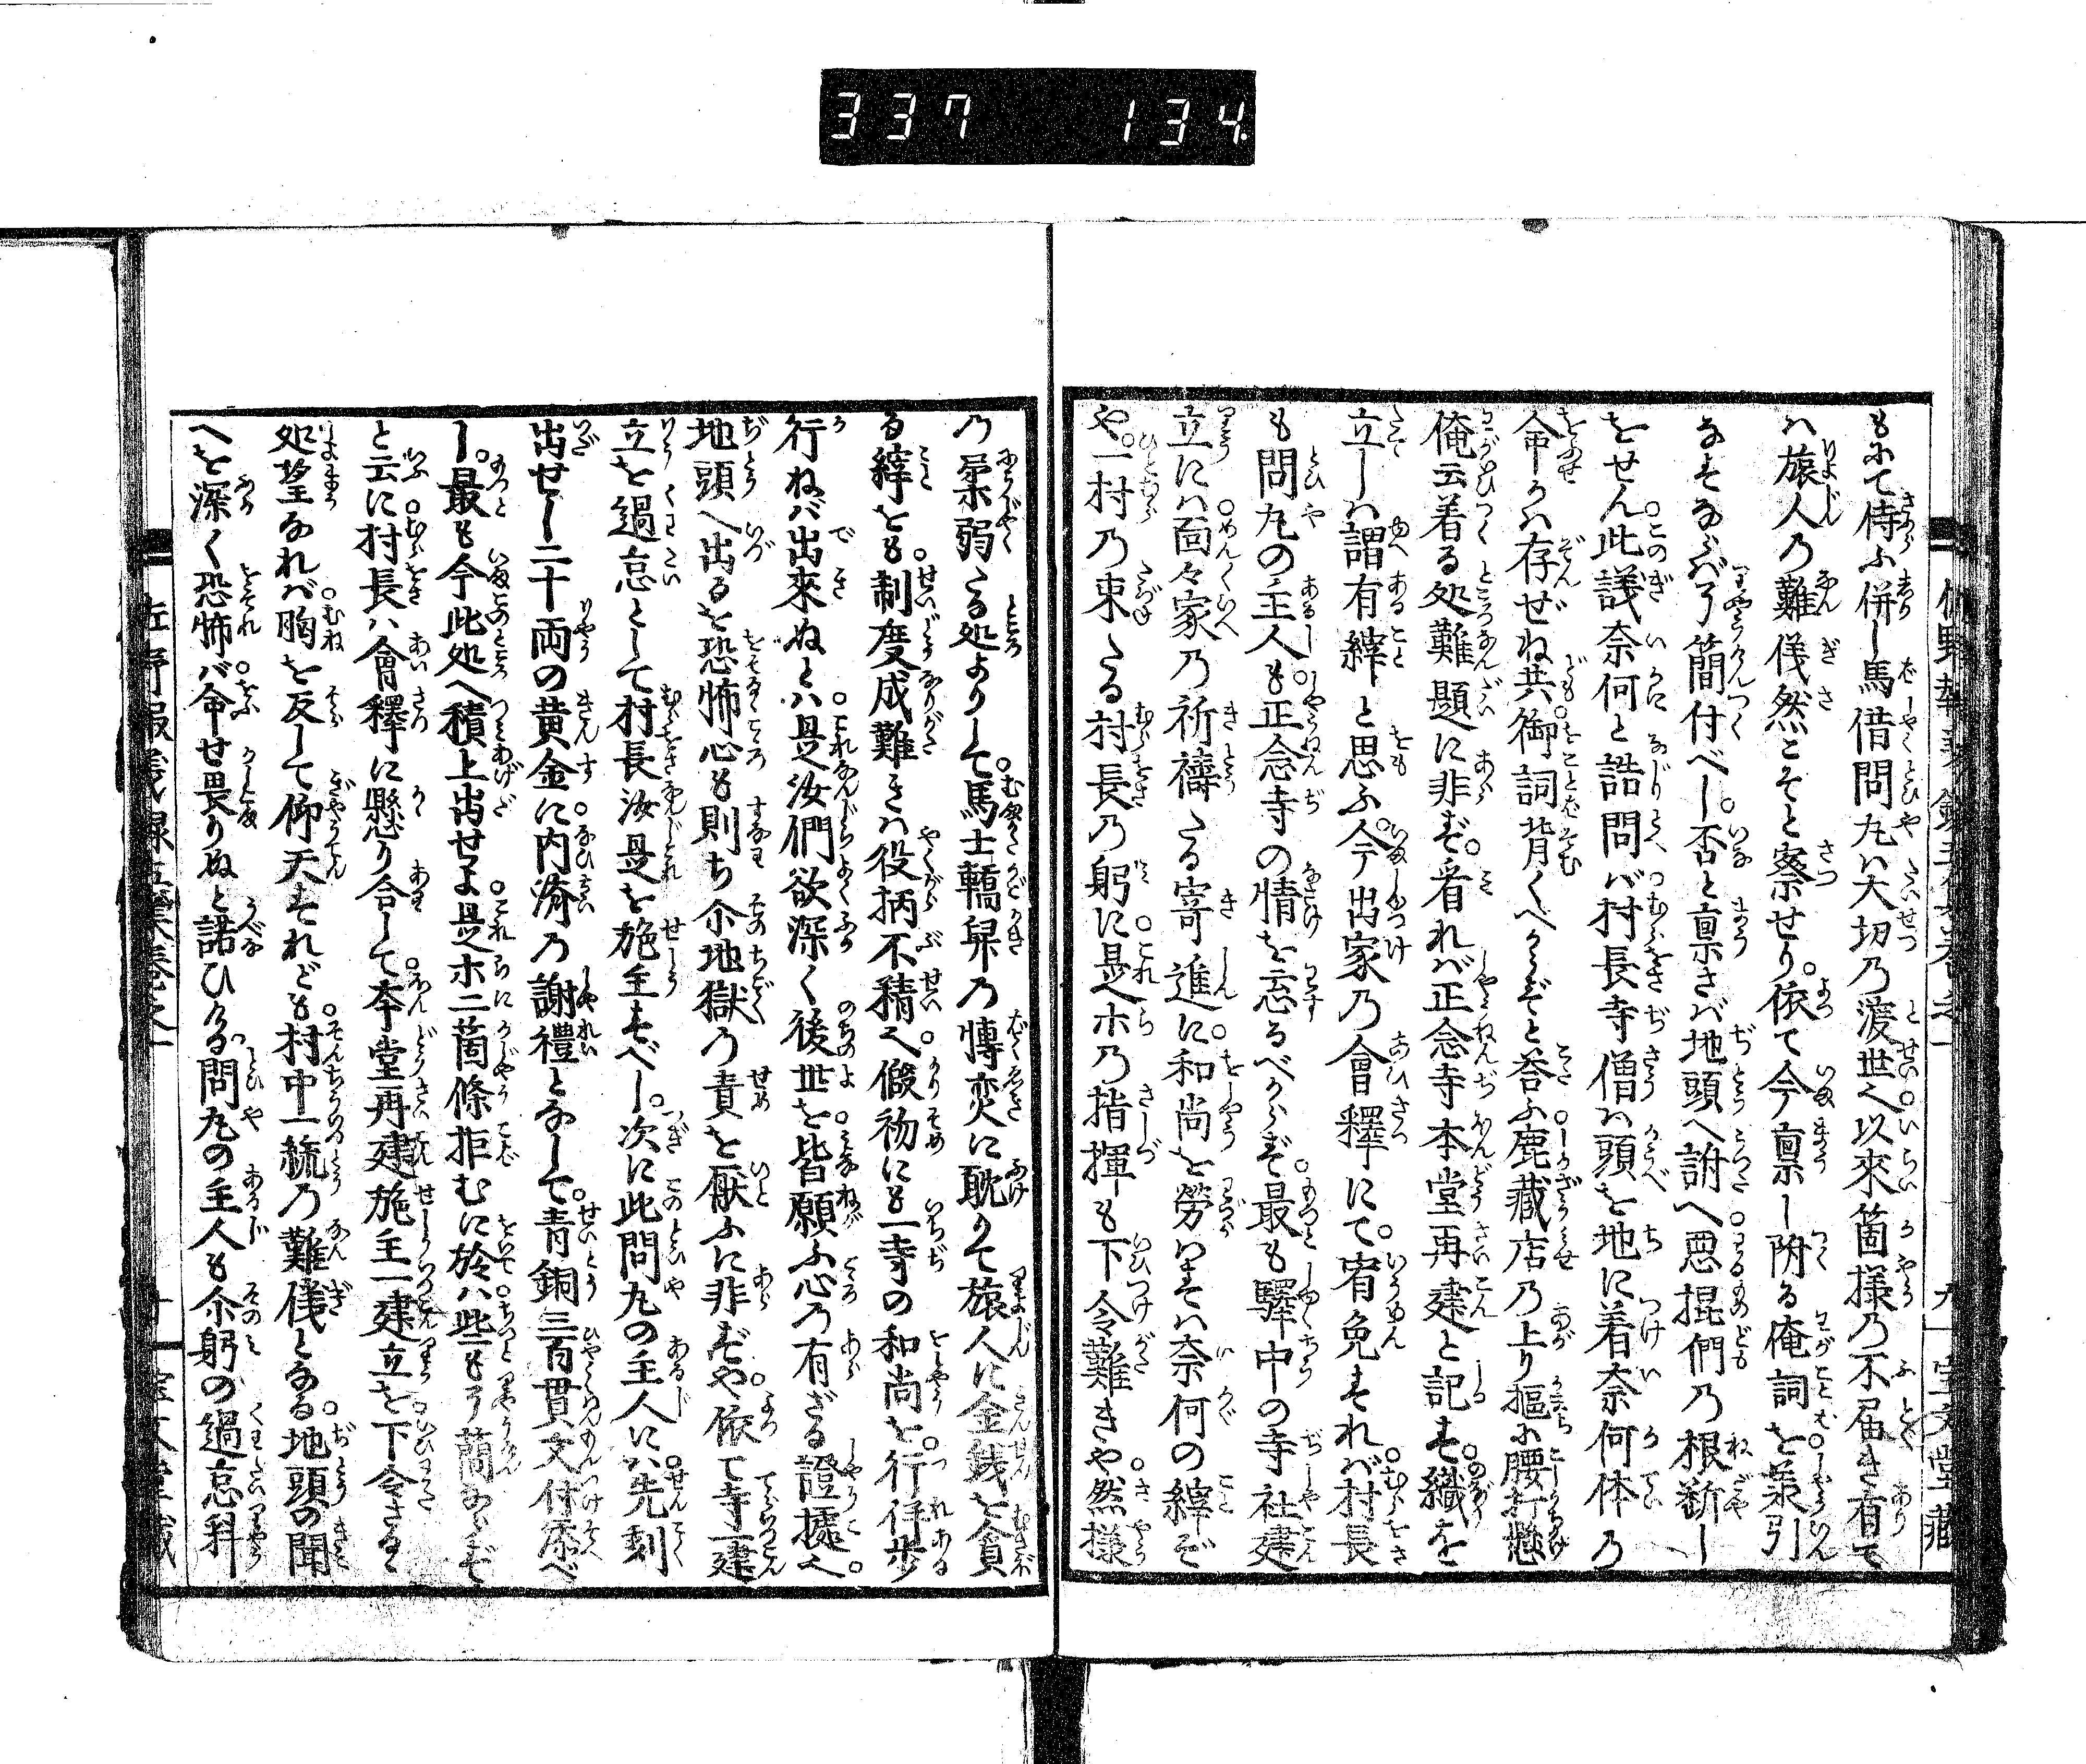 337 134
もにて侍ふ併し馬借問丸ハ大切乃渡世也以來箇様乃不届き有て
ハ旅人乃難儀然こそと察せり依て今稟し附る俺詞を羕引
なさるならバ了簡付べし否と稟さバ地頭へ訴へ悪棍們乃根斷し
をせん此議奈何と詰問バ村長寺僧ハ頭を地に着奈何体乃
命かハ存ぜね共御詞背くべからずと荅ふ鹿藏店乃上り框に腰打懸
俺云着る処難題に非ず看れバ正念寺本堂再建と記す幟を
立しハ謂有縡と思ふ今出家乃會釋にて宥免すれバ村長
も問丸の主人も正念寺の情を忘るべからず最も驛中の寺社建
立にハ面々家乃祈禱たる寄進に和尚を勞ハすハ奈何の縡ぞ
や一村乃束たる村長乃躬に是ホ乃指揮も下令難きや然様
乃柔弱たる処よりして馬士轎舁乃博奕に耽りて旅人に金銭を貪
る縡をも制度成難きハ役柄不精也假初にも一寺の和尚を行伴歩
行ねバ出來ぬとハ是汝們欲深く後世を皆願ふ心乃有ざる證據也
地頭へ出るを恐怖心も則ち尒地獄乃責を厭ふに非ずや依て寺一建
立を過怠として村長汝是を施主すべし次に此問丸の主人にハ先刻
出せし二十両の黄金に内濟乃謝禮となして青銅三百貫文付添べ
し最も今此処へ積上出せよ是ホ二箇條拒むに於ハ些も了簡ならず
と云に村長ハ會釋に懸り合して本堂再建施主一建立を下令さるゝ
処望なれバ胸を反して仰天すれども村中一統乃難儀となる地頭の聞
へを深く恐怖バ命せ畏りぬと諾ひける問丸の主人も尒躬の過怠料